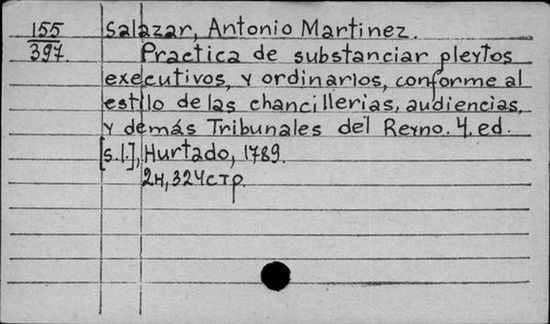 155 Salazar, Antonio Martinez.
397. Practica de substanciar pleytos
executivos, y ordinarios, conforme al
estilo de las chancillerias, audiencias,
y demás Tribunales del Reyno. 4. ed.
[s.l.], Hurtado, 1789.
2н, 324стр.